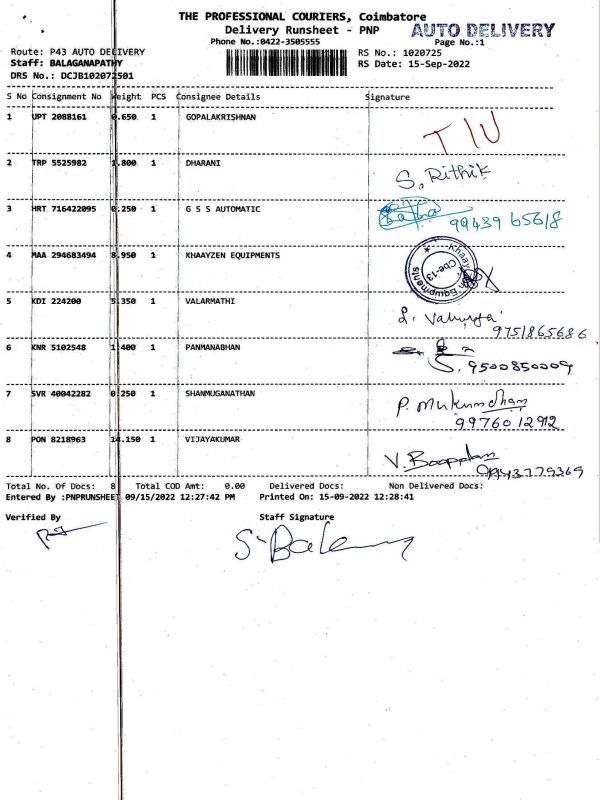 THE PROFESSIONAL COURIERS, Coimbatore
Delivery Runsheet - PNP
AUTO DELIVERY
Phone No.:0422-3505555
Page No.:1
Route: P43 AUTO DELIVERY
RS No.: 1020725
Staff: BALAGANAPATHY
RS Date: 15-Sep-2022
DRS No.: DCJB102072501
S No Consignment No Weight PCS Consignee Details Signature
1 UPT 2088161 0.650 1 GOPALAKRISHNAN
2 TRP 5525982 1.800 1 DHARANI S. Rithik
3 HRT 716422095 0.250 1 G S S AUTOMATIC 99439 65618
4 MAA 294683494 8.950 1 KHAAYZEN EQUIPMENTS Khaayzen Equipments Cbe-13
5 KDI 224200 5.350 1 VALARMATHI
9751865686
6 KNR 5102548 1.400 1 PANMANABHAN
S. 9500850009
7 SVR 40042282 0.250 1 SHANMUGANATHAN P. Mukundhan
99760 12912
8 PON 8218963 14.150 1 VIJAYAKUMAR V. Booppalan
9443779369
Total No. Of Docs: 8 Total COD Amt: 0.00 Delivered Docs: Non Delivered Docs:
Entered By :PNPRUNSHEET 09/15/2022 12:27:42 PM Printed On: 15-09-2022 12:28:41
Verified By Staff Signature